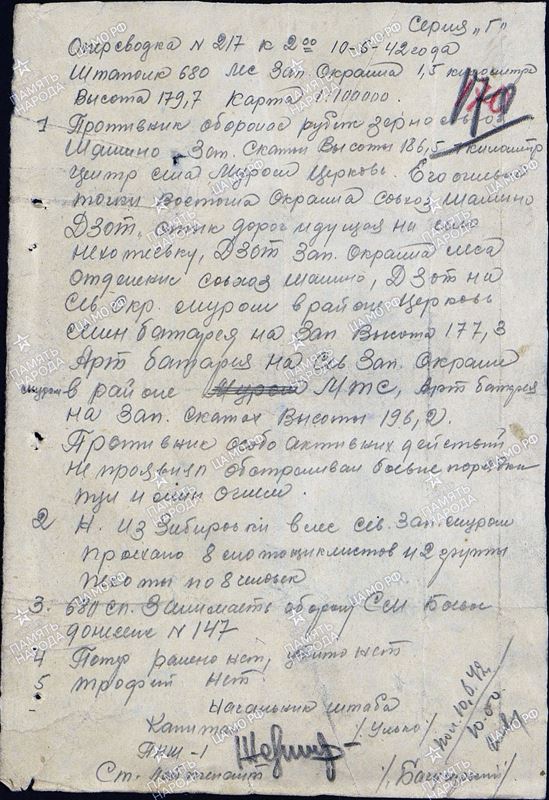 Серия „Г"
Оперсводка N 217 к 2⁰⁰ 10-5-42 года
Штаполк 680 лес Зап. Окраина 1,5 километра
Высота 179,7 Карта 1:100000.
170
1 Противник оборонял рубеж зерносовхоз
Машино Зап. Скаты Высоты 186,5 километр
Центр села Муром Церковь. Его огневые
точки Восточна Окраина совхоз Машино
Дзот, стык дорог идущая на село
Нехотевку, Дзот Зап. Окраина леса
Отделение совхоз Машино, Дзот на
Сев окр. Муром в районе Церковь
Мин батарея на Зап Высота 177,3
Арт батарея на Сев Зап. Окраине
Муром в районе МТС, Арт батарея
на Зап. Скатах Высоты 196,2.
Противник особо активных действий
не проявлял обстреливал боевые порядки
пул и мин огнем.
2 Н. Из Зибировки в лес Сев. Зап. Муром
проехало 8 мотоциклистов и 2 группы
пехоты по 8 человек
3. 680 сп. Занимает оборону См Боево
донесение N 147
4 Потер ранено нет, убито нет
5 трофей нет.
Начальник штаба
Капитан /Улько/
ПНШ-1
Ст. Лейтенант
10.5.42
10.00
ПАМЯТЬ НАРОДА
ЦАМО.РФ